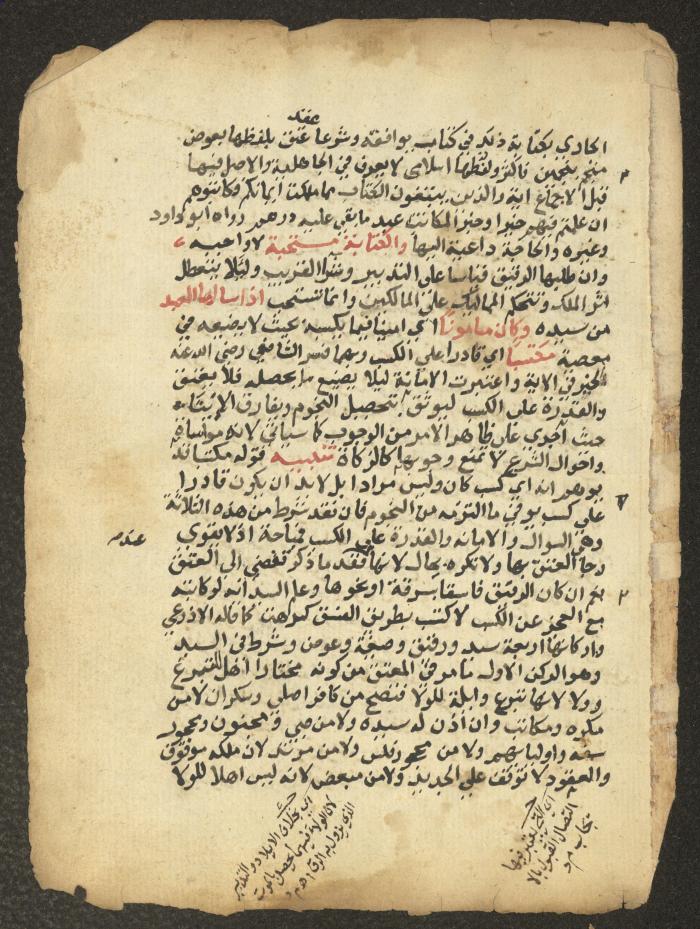 عقد
الجاري بكتابة ذلك في كتاب يوافقه وشرعا عتق بلفظها بعوض
منجم بنجمين فاكثر ولفظها اسلامي لا يعرف في الجاهلية والاصل فيها
قبل الاجماع اية والذين يبتغون الكتاب مما ملكت ايمانكم فكاتبوهم
ان علمتم فيهم خيرا وخبر المكاتب عبد ما بقي عليه درهم رواه ابو داود
وغيره والحاجة داعية اليها والكتابة مستحبة لا واجبه
وان طلبها الرقيق قياسا على التدبير وشرا القريب وليلا يتعطل
اثر الملك وتتحكم المماليك على المالكين وانما تستحب اذا سالها العبد
من سيده وكان مامونا اي امينا فيما يكسبه بحيث لا يضيعه في
معصية مكتسبا اي قادرا على الكسب وبهما فسر الشافعي رضي الله عنه
الخير في الاية واعتبرت الامانة ليلا يضيع ما يحصله فلا يعتق
والقدرة على الكسب ليوثق بتحصيل النجوم ويفارق الايتاء
حيث اجري على ظاهر الامر من الوجوب كما سياتي لانه مواساة
واحوال الشرع لا تمنع وجوبها كالزكاة تنبيه قوله مكتسبا قد
يوهم انه اي كسب كان وليس مرادا بل لا بد ان يكون قادرا
على كسب يوفي ما التزمه من النجوم فان فقد شرط من هذه الثلاثة
وهي السوال والامانة والقدرة على الكسب فمباحة اذ لا يقوى
رجا العتق بها ولا تكره بحال لانها عند فقد ما ذكر تفضي الى العتق
نعم ان كان الرقيق فاسقا بسرقة او نحوها وعلم السيد انه لو كاتبه
مع العجز عن الكسب لاكتسب بطريق الفسق كرهت كما قاله الاذرعي
واركانها اربعة سيد ورقيق وصيغة وعوض وشرط في السيد
وهو الركن الاول ما مر في المعتق من كونه مختارا اهل للتبرع
وولا لانها تبرع وايلة للولا فتصح من كافر اصلي وسكران لا من
مكره ومكاتب وان اذن له سيده ولا من صبي ومجنون ومحجور
سفه واوليائهم ولا من محجور فلس ولا من مرتد لان ملكه موقوف
والعقود لا توقف على الجديد ولا من مبعض لانه ليس اهلا للولا